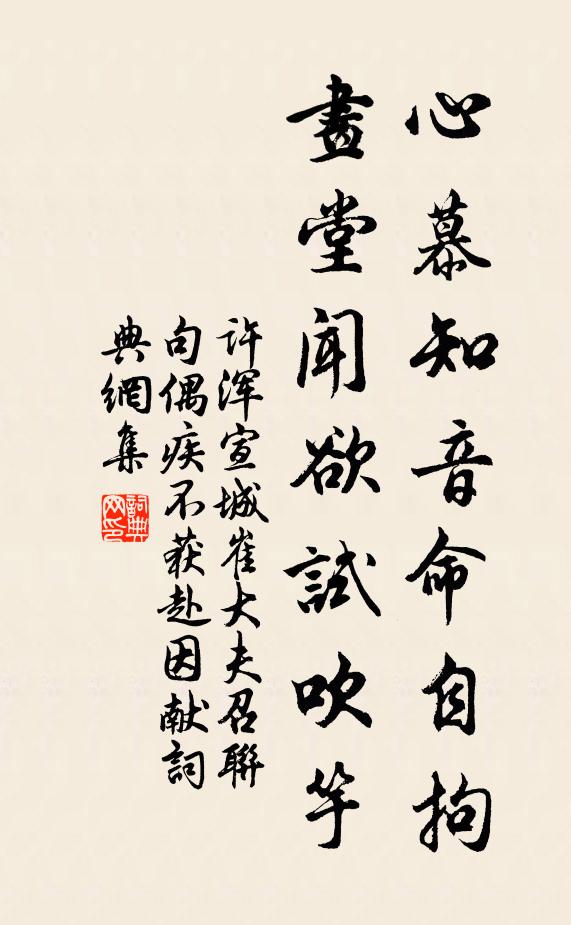 心慕知音命自拘
畫堂聞欲試吹竽
许浑宣城崔大夫召聯
句偶疾不获赴因献詞
典網集
詞典
网印